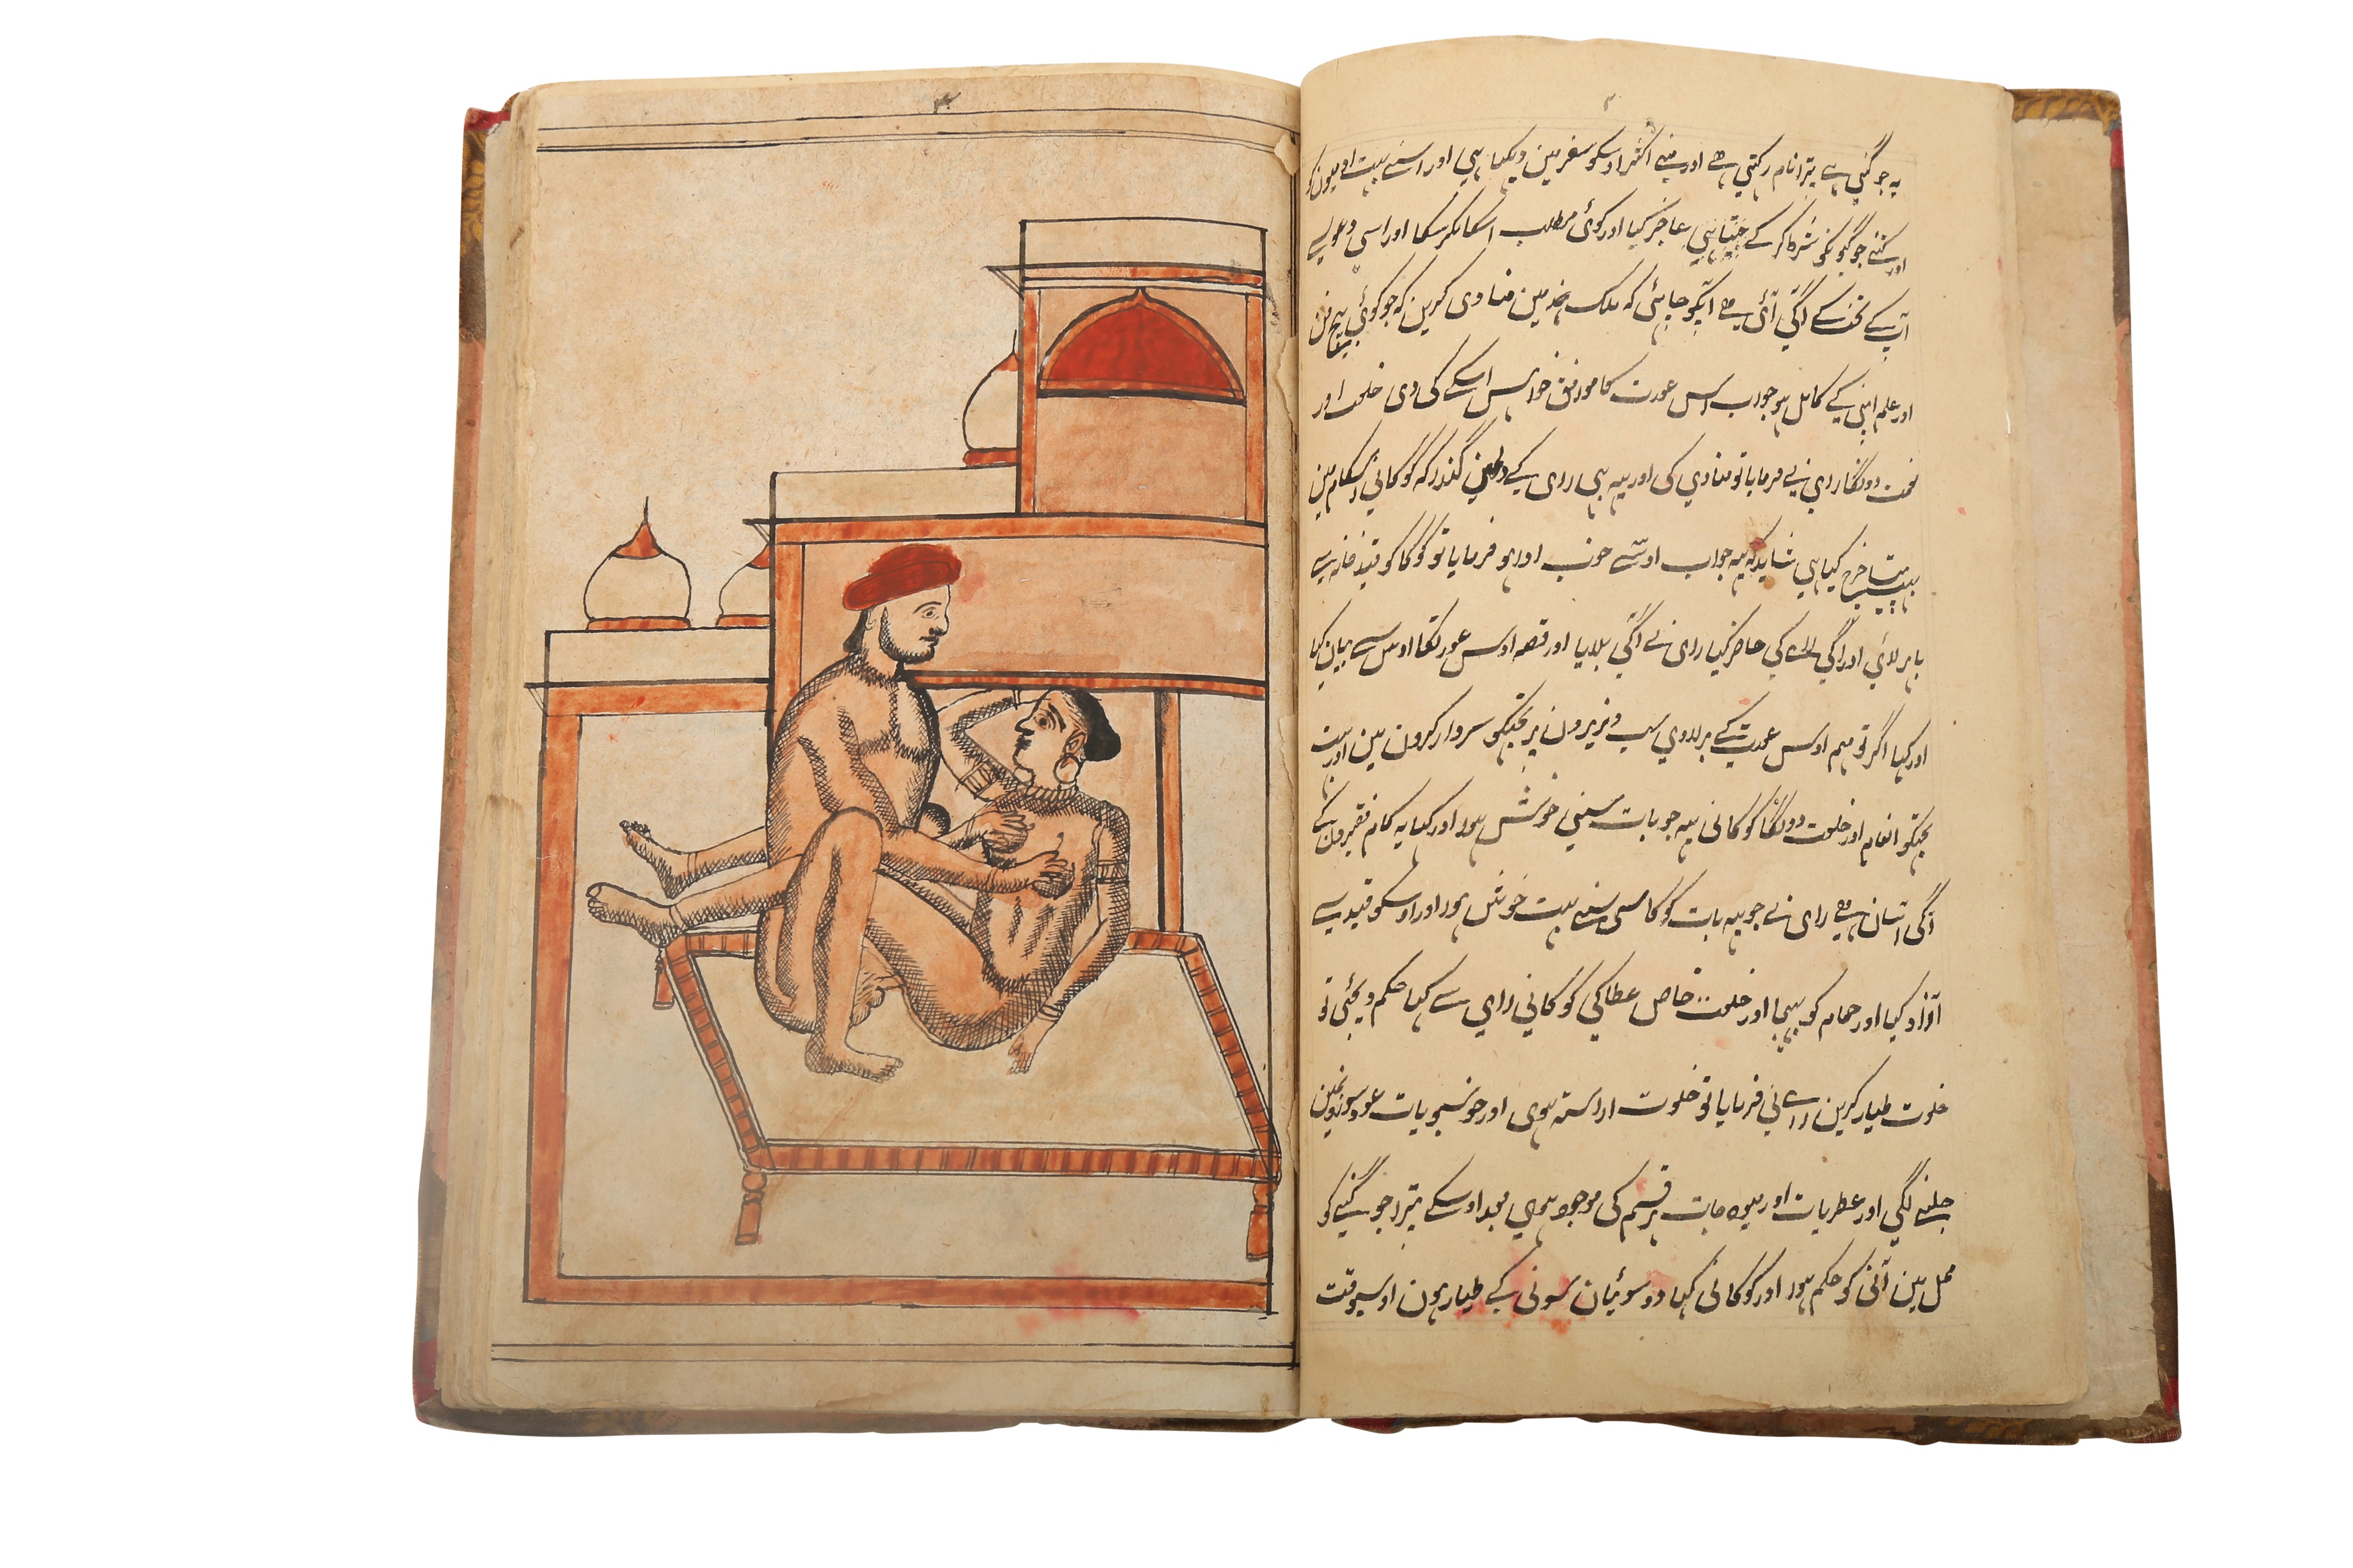 یہ جوگنی ہے تیرا نام رکہتی ہے اور مینے اکثر اوسکو سفر مین دیکہا ہی اور اسنے بہت آدمیون کو
اور کتنے جوگیونکو عاجز کیا اور کوئی مطلب اسکا نکرسکا اور اسی دعوے سے
آپ کے تخت کے آگی آئی ہے آپکو چاہئی کہ ملک ہند مین منادی کرین کہ جو کوئی بیچ فن
اور علم اپنی کے کامل ہو جواب اس عورت کا موافق خواہش اسکے کی دی خلعت اور
نعمت دونگا رای نے فرمایا تو منادی کی اور یہ بہی رای کے دلمین گذرا کہ کوکانی اس کام مین
بہت خرچ کیا ہی شاید کہ یہ جواب اوسے خوب اور ہو فرمایا تو کوکا کو قید خانہ سے
باہر لائی اور آگی لاکے کی حاضر کیا رای نے آگی بلایا اور قصہ اوس عورتکا اوس سے بیان کیا
اور کہا اگر تو مہم اوس عورت کے برلاوی سب وزیرون پر تجہکو سردار کرون مین اور بہت
تجہکو انعام اور خلعت دونگا کوکانی یہ جو بات سنی خوش ہوا اور کہا یہ کام فقیرون کے
آگی آسان ہے رای نے جو یہ بات کوکا سی سنے بہت خوش ہوا اور اوسکو قید سے
آزاد کیا اور حمام کو بہیجا اور خلعت خاص عطا کی کوکانی رای سے کہا حکم دیجئی تو
خلوت طیار کرین رای نی فرمایا تو خلوت آراستہ ہوی اور خوشبویات عود سوزونمین
جلنے لگی اور عطریات اور میوہ جات ہر قسم کی موجود ہوی بعد اوسکے تیرا جوگنی کو
محل مین آنی کو حکم ہوا اور کوکانی کہا دو سوئیان سونی کے طیار ہون اوسیوقت